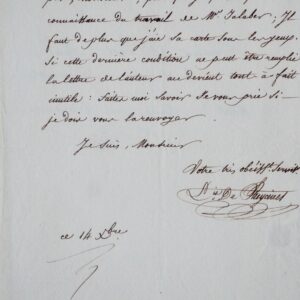 connaissance du travail de Mr Jalaber; Il
faut de plus que j'aie sa carte sous les yeux.
Si cette dernière condition ne peut être remplie
la lettre de l'auteur me devient tout à fait
inutile : faites moi savoir Je vous prie si
je dois vous la renvoyer
Je suis, Monsieur
Votre très obéisst. Servit.
De
ce 14 Xbre